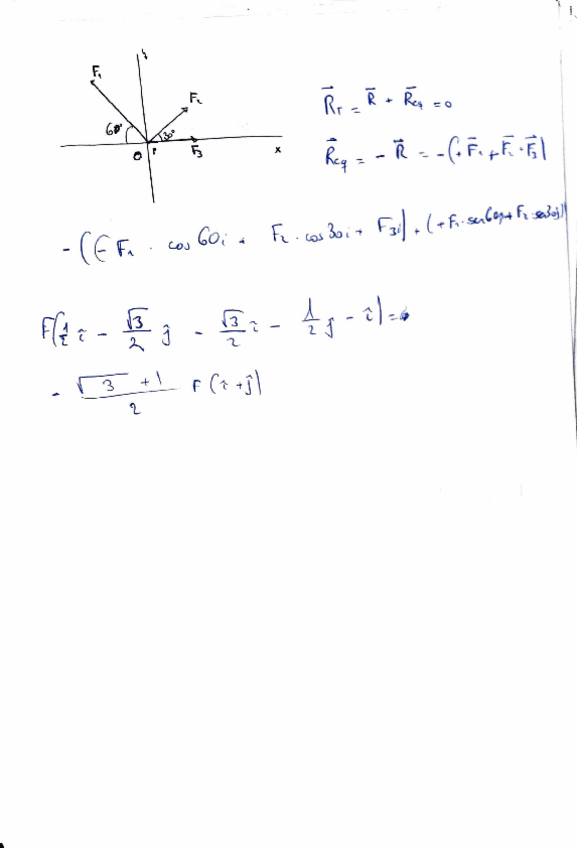 F₁
F₂
60°
30°
O
F₃
x
R⃗ᴛ = R⃗ + R⃗eq = 0
R⃗eq = - R⃗ = -(+F⃗₁ + F⃗₂ + F⃗₃)
- ((-F₁ · cos 60i + F₂ · cos 30i + F₃i) + (+F₁ · sen60j + F₂ sen30j))
F(1/2 î - √3/2 ĵ - √3/2 î - 1/2 ĵ - î) =
- (√3 + 1)/2 F (î + ĵ)